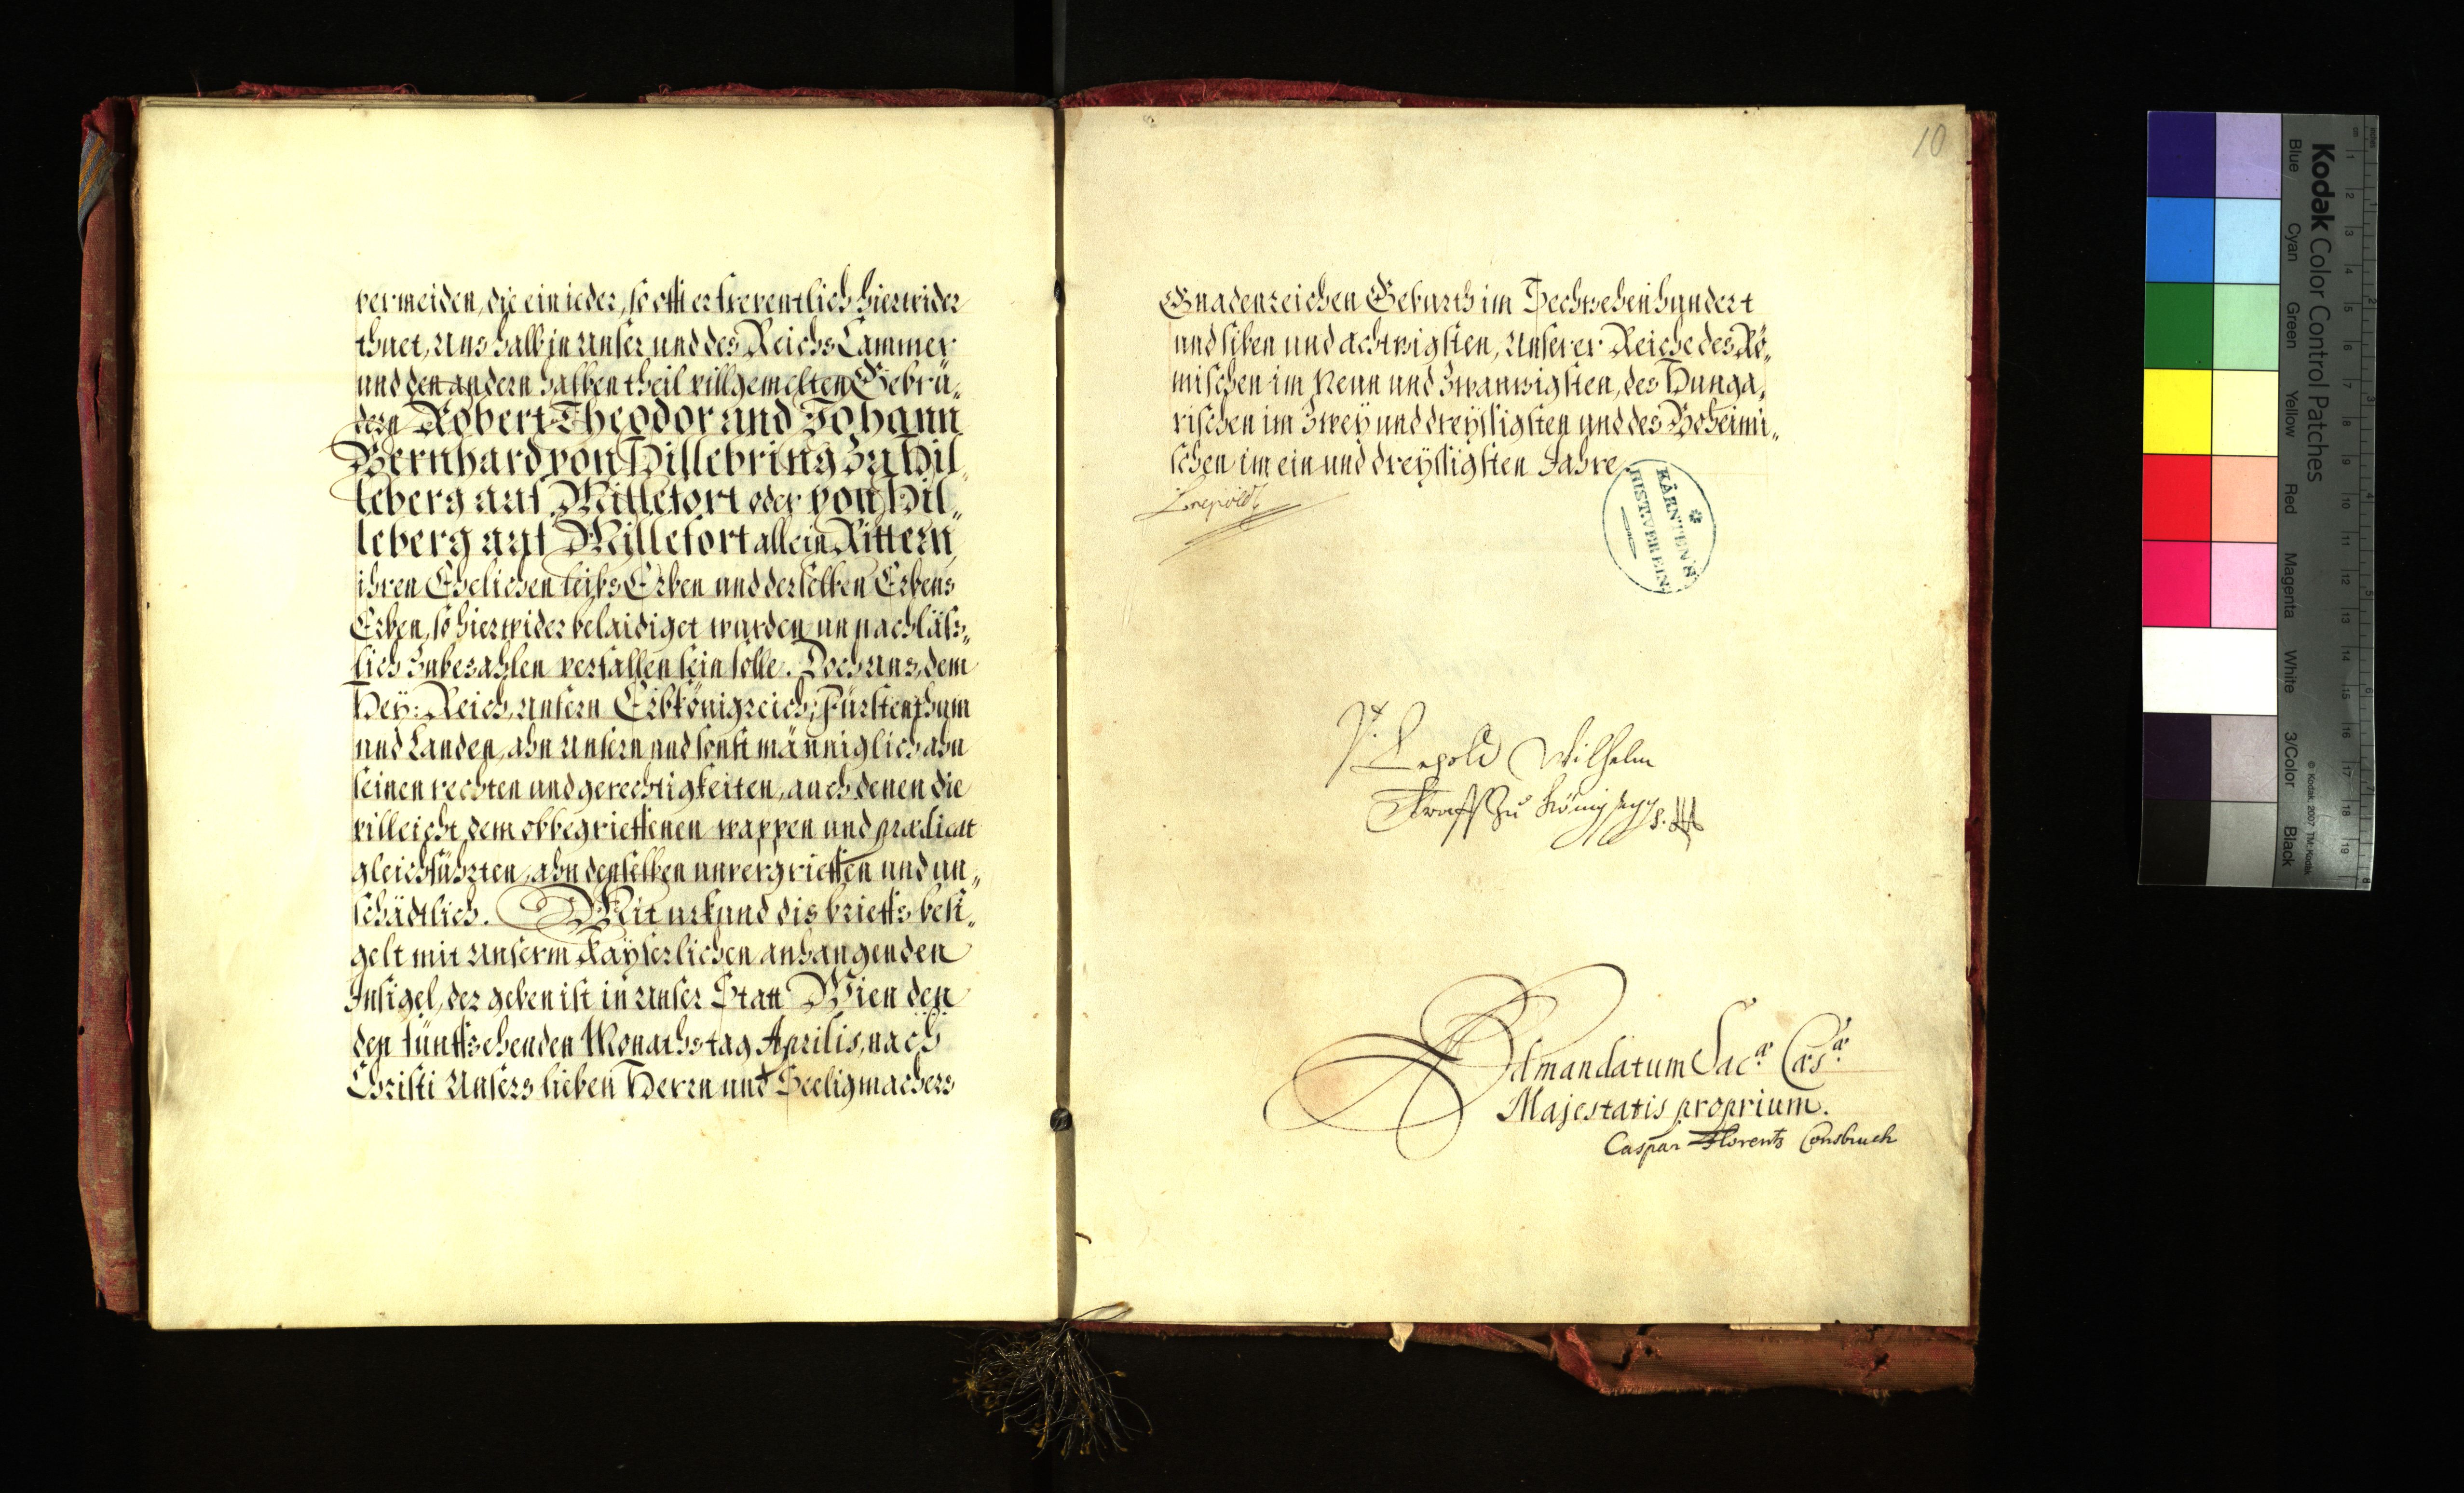 vermeiden, die ein ieder, so offt er freventlich hierwider
thuet, Uns halb in Unser und des Reichs Cammer
und den andern halben theil villgemelten Gebrü„
dern Robert Theodor und Johann
Bernhard von Hillebring zu Hil„
leberg auf Millefort oder von Hil„
leberg auf Millefort allein Rittern
ihren Ehelichen leibs Erben und derselben Erbens
Erben, so hierwider belaidiget wurden unnachläß„
lich zubezahlen verfallen sein solle. Doch Uns, dem
Hey: Reich, Unsern Erbkönigreich, Fürstenthum
und Landen, ahn Unsern und sonst männiglich ahn
seinen rechten und gerechtigkeiten, auch denen die
villeicht dem obbegrieffenen wappen und prædicat
gleichführten, ahn denselben unvergrieffen und un„
schädtlich. Mit urkund dis brieffs besi„
gelt mit Unserm Kayserlichen anhangenden
Insigel, der geben ist in Unser Statt Wien den
den fünffzehenden Monathstag Aprilis, nach
Christi Unsers lieben Herrn und Seeligmachers
10
Gnadenreichen Geburth im Sechzehenhundert
und siben und achtzigsten, Unserer Reiche des Rö„
mischen im Neun und zwanzigsten, des Hunga„
rischen im Zwey und dreyssigsten und des Boheimi„
schen im ein und dreyssigsten Jahre
Leopold
KÄRNTEN'S
HIST. VEREIN
Vt. Leopold Wilhelm
Graff zu Königsegg
Ad mandatum Sac.ae Cæs.ae
Majestatis proprium.
Caspar Florentz Consbruch
Kodak Color Control Patches
Blue Cyan Green Yellow Red Magenta White 3/Color Black
© Kodak, 2007 TM: Kodak